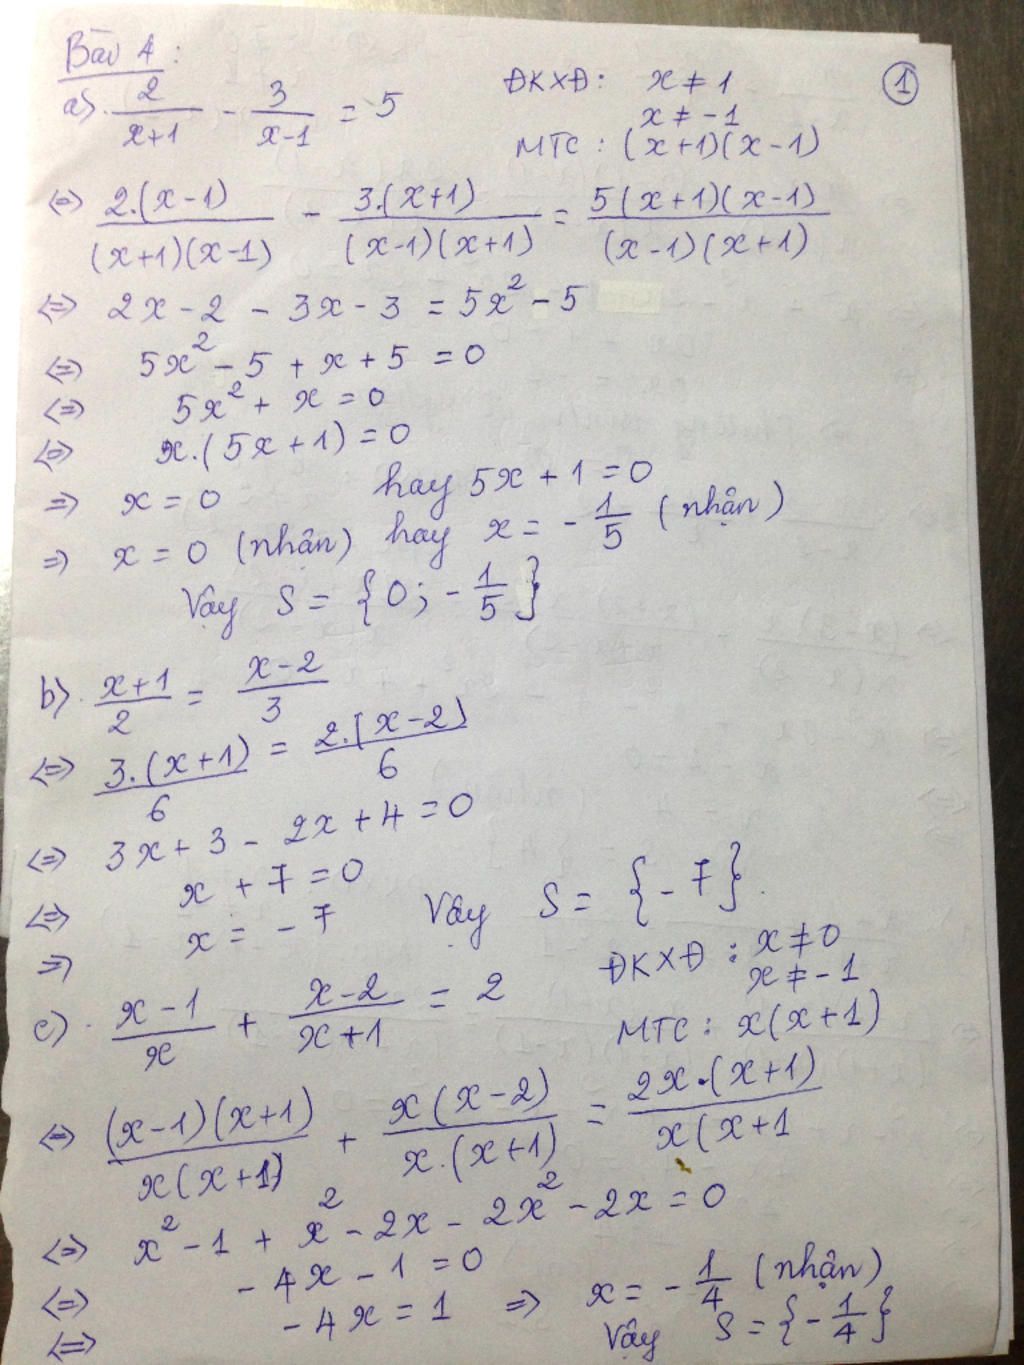 Bài 4 :
①
a) 2/(x+1) - 3/(x-1) = 5 ĐKXĐ: x ≠ 1
x ≠ -1
MTC : (x+1)(x-1)
⇔ 2.(x-1)/((x+1)(x-1)) - 3.(x+1)/((x-1)(x+1)) = 5(x+1)(x-1)/((x-1)(x+1))
⇔ 2x - 2 - 3x - 3 = 5x² - 5
⇔ 5x² - 5 + x + 5 = 0
⇔ 5x² + x = 0
⇔ x.(5x+1) = 0
⇒ x = 0 hay 5x + 1 = 0
⇒ x = 0 (nhận) hay x = -1/5 (nhận)
Vậy S = {0; -1/5}
b) (x+1)/2 = (x-2)/3
⇔ 3.(x+1)/6 = 2.(x-2)/6
⇔ 3x + 3 - 2x + 4 = 0
⇔ x + 7 = 0
⇒ x = -7 Vậy S = {-7}.
c) (x-1)/x + (x-2)/(x+1) = 2 ĐKXĐ : x ≠ 0
x ≠ -1
MTC : x(x+1)
⇔ (x-1)(x+1)/(x(x+1)) + x(x-2)/(x.(x+1)) = 2x.(x+1)/(x(x+1
⇔ x² - 1 + x² - 2x - 2x² - 2x = 0
⇔ - 4x - 1 = 0
⇔ - 4x = 1 ⇒ x = -1/4 (nhận)
Vậy S = {-1/4}